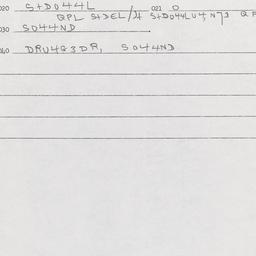 020 S+D044L 021 0
QPL S+DEL/4 S+D044LU4, N73 Q F
030 S044ND
060 DRU4Q3DR, S044ND